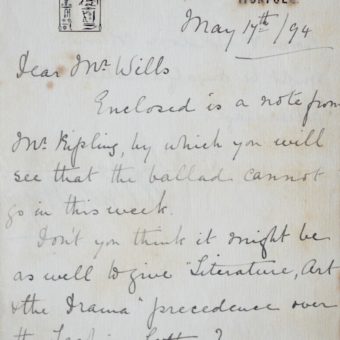 May 17th/94
Dear Mr Wills
Enclosed is a note from
Mr Kipling, by which you will
see that the ballad cannot
go in this week.
Don't you think it might be
as well to give "Literature, Art
& the Drama" precedence over